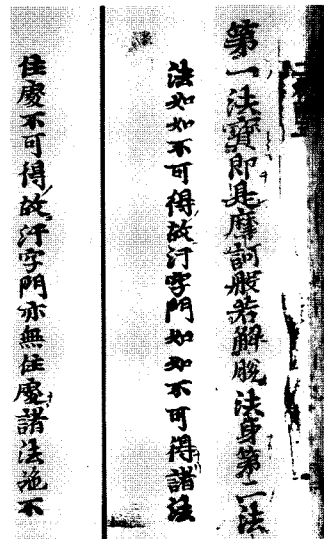 第一法寶即是摩訶般若解脫法身第二法
法如如不可得故汙字門如如不可得諸法
住處不可得故汙字門亦無住處諸法施不